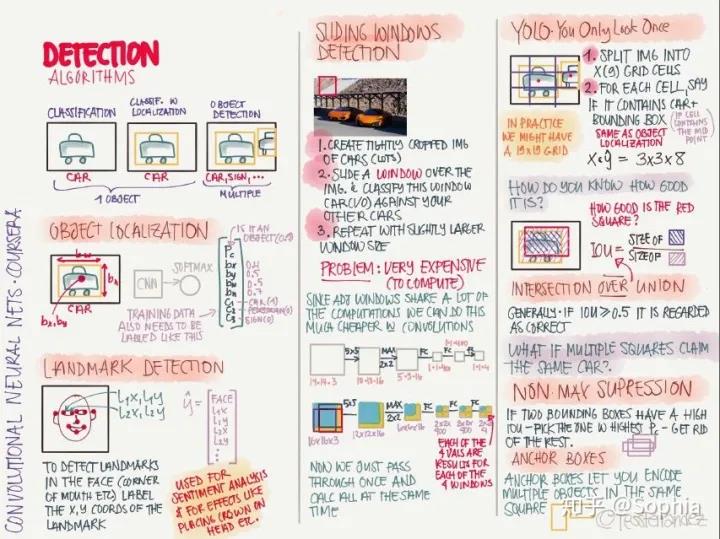 CONVOLUTIONAL NEURAL NETS · COURSERA
DETECTION
ALGORITHMS
CLASSIFICATION
CLASSIF. W
LOCALIZATION
OBJECT
DETECTION
CAR
CAR
CAR, SIGN, ...
1 OBJECT
MULTIPLE
OBJECT LOCALIZATION
bw
bh
bx, by
CAR
CNN
SOFTMAX
IS IT AN
OBJECT (0/1)
Pc
bx
by
bh
bw
C1
C2
C3
0.5
0.5
0.7
CAR (1)
PEDESTRIAN (0)
SIGN (0)
TRAINING DATA
ALSO NEEDS TO BE
LABELED LIKE THIS
LANDMARK DETECTION
l1x, l1y
l2x, l2y
ŷ =
FACE
l1x
l1y
l2x
l2y
TO DETECT LANDMARKS
IN THE FACE (CORNER
OF MOUTH ETC) LABEL
THE X,Y COORDS OF THE
LANDMARK
USED FOR
SENTIMENT ANALYSIS
& FOR EFFECTS LIKE
PLACING CROWN ON
HEAD ETC.
SLIDING WINDOWS
DETECTION
1. CREATE TIGHTLY CROPPED IMG
OF CARS (LOTS)
2. SLIDE A WINDOW OVER THE
IMG. & CLASSIFY THIS WINDOW
CAR (1/0) AGAINST YOUR
OTHER CARS
3. REPEAT WITH SLIGHTLY LARGER
WINDOW SIZE
PROBLEM: VERY EXPENSIVE
(TO COMPUTE)
SINCE ADJ WINDOWS SHARE A LOT OF
THE COMPUTATIONS WE CAN DO THIS
MUCH CHEAPER W CONVOLUTIONS
5x5
MAX
2x2
FC
FC
14×14×3
10×10×16
5×5×16
5x5
MAX
2x2
FC
FC
FC
16×16×3
12×12×16
EACH OF THE
4 VALS ARE
RESULTS FOR
EACH OF THE
4 WINDOWS
NOW WE JUST PASS
THROUGH ONCE AND
CALC ALL AT THE SAME
TIME
YOLO · You Only Look Once
1. SPLIT IMG INTO
X(9) GRID CELLS
2. FOR EACH CELL, SAY
IF IT CONTAINS CAR +
BOUNDING BOX
(IF CELL
CONTAINS
THE MID
POINT)
SAME AS OBJECT
LOCALIZATION
IN PRACTICE
WE MIGHT HAVE
A 19x19 GRID
= 3x3x8
HOW DO YOU KNOW HOW GOOD
IT IS?
HOW GOOD IS THE RED
SQUARE?
IOU =
SIZE OF
SIZE OF
INTERSECTION OVER UNION
GENERALLY · IF IOU ≥ 0.5 IT IS REGARDED
AS CORRECT
WHAT IF MULTIPLE SQUARES CLAIM
THE SAME CAR?
NON MAX SUPRESSION
IF TWO BOUNDING BOXES HAVE A HIGH
IOU - PICK THE ONE W HIGHEST Pc - GET RID
OF THE REST.
ANCHOR BOXES
ANCHOR BOXES LET YOU ENCODE
MULTIPLE OBJECTS IN THE SAME
SQUARE
知乎 @Sophia